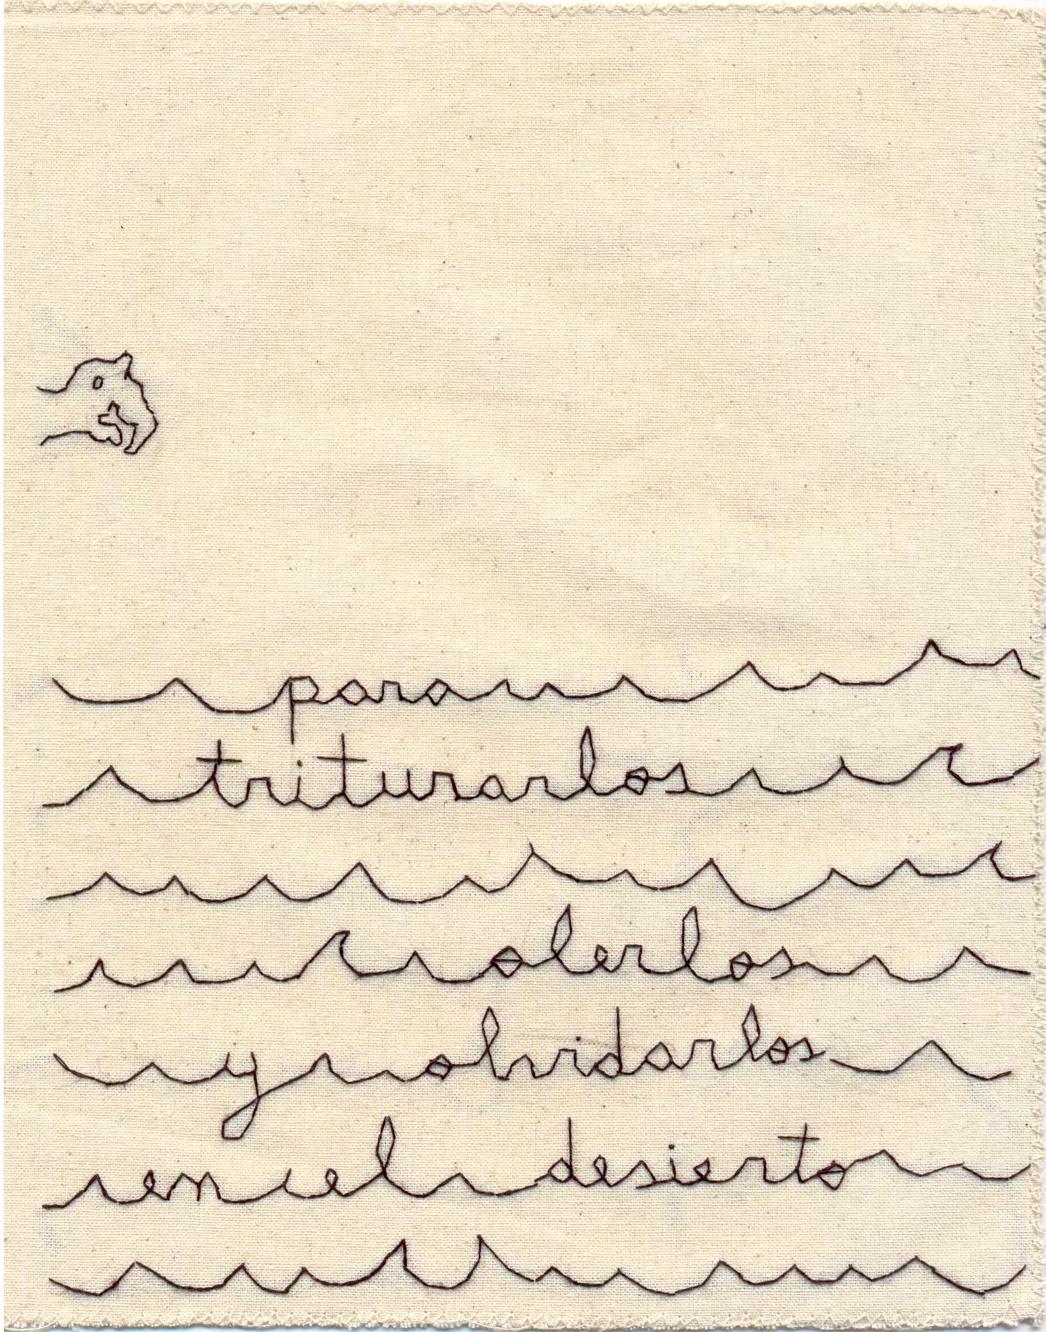 para
triturarlos
olerlos
y olvidarlos
en el desierto